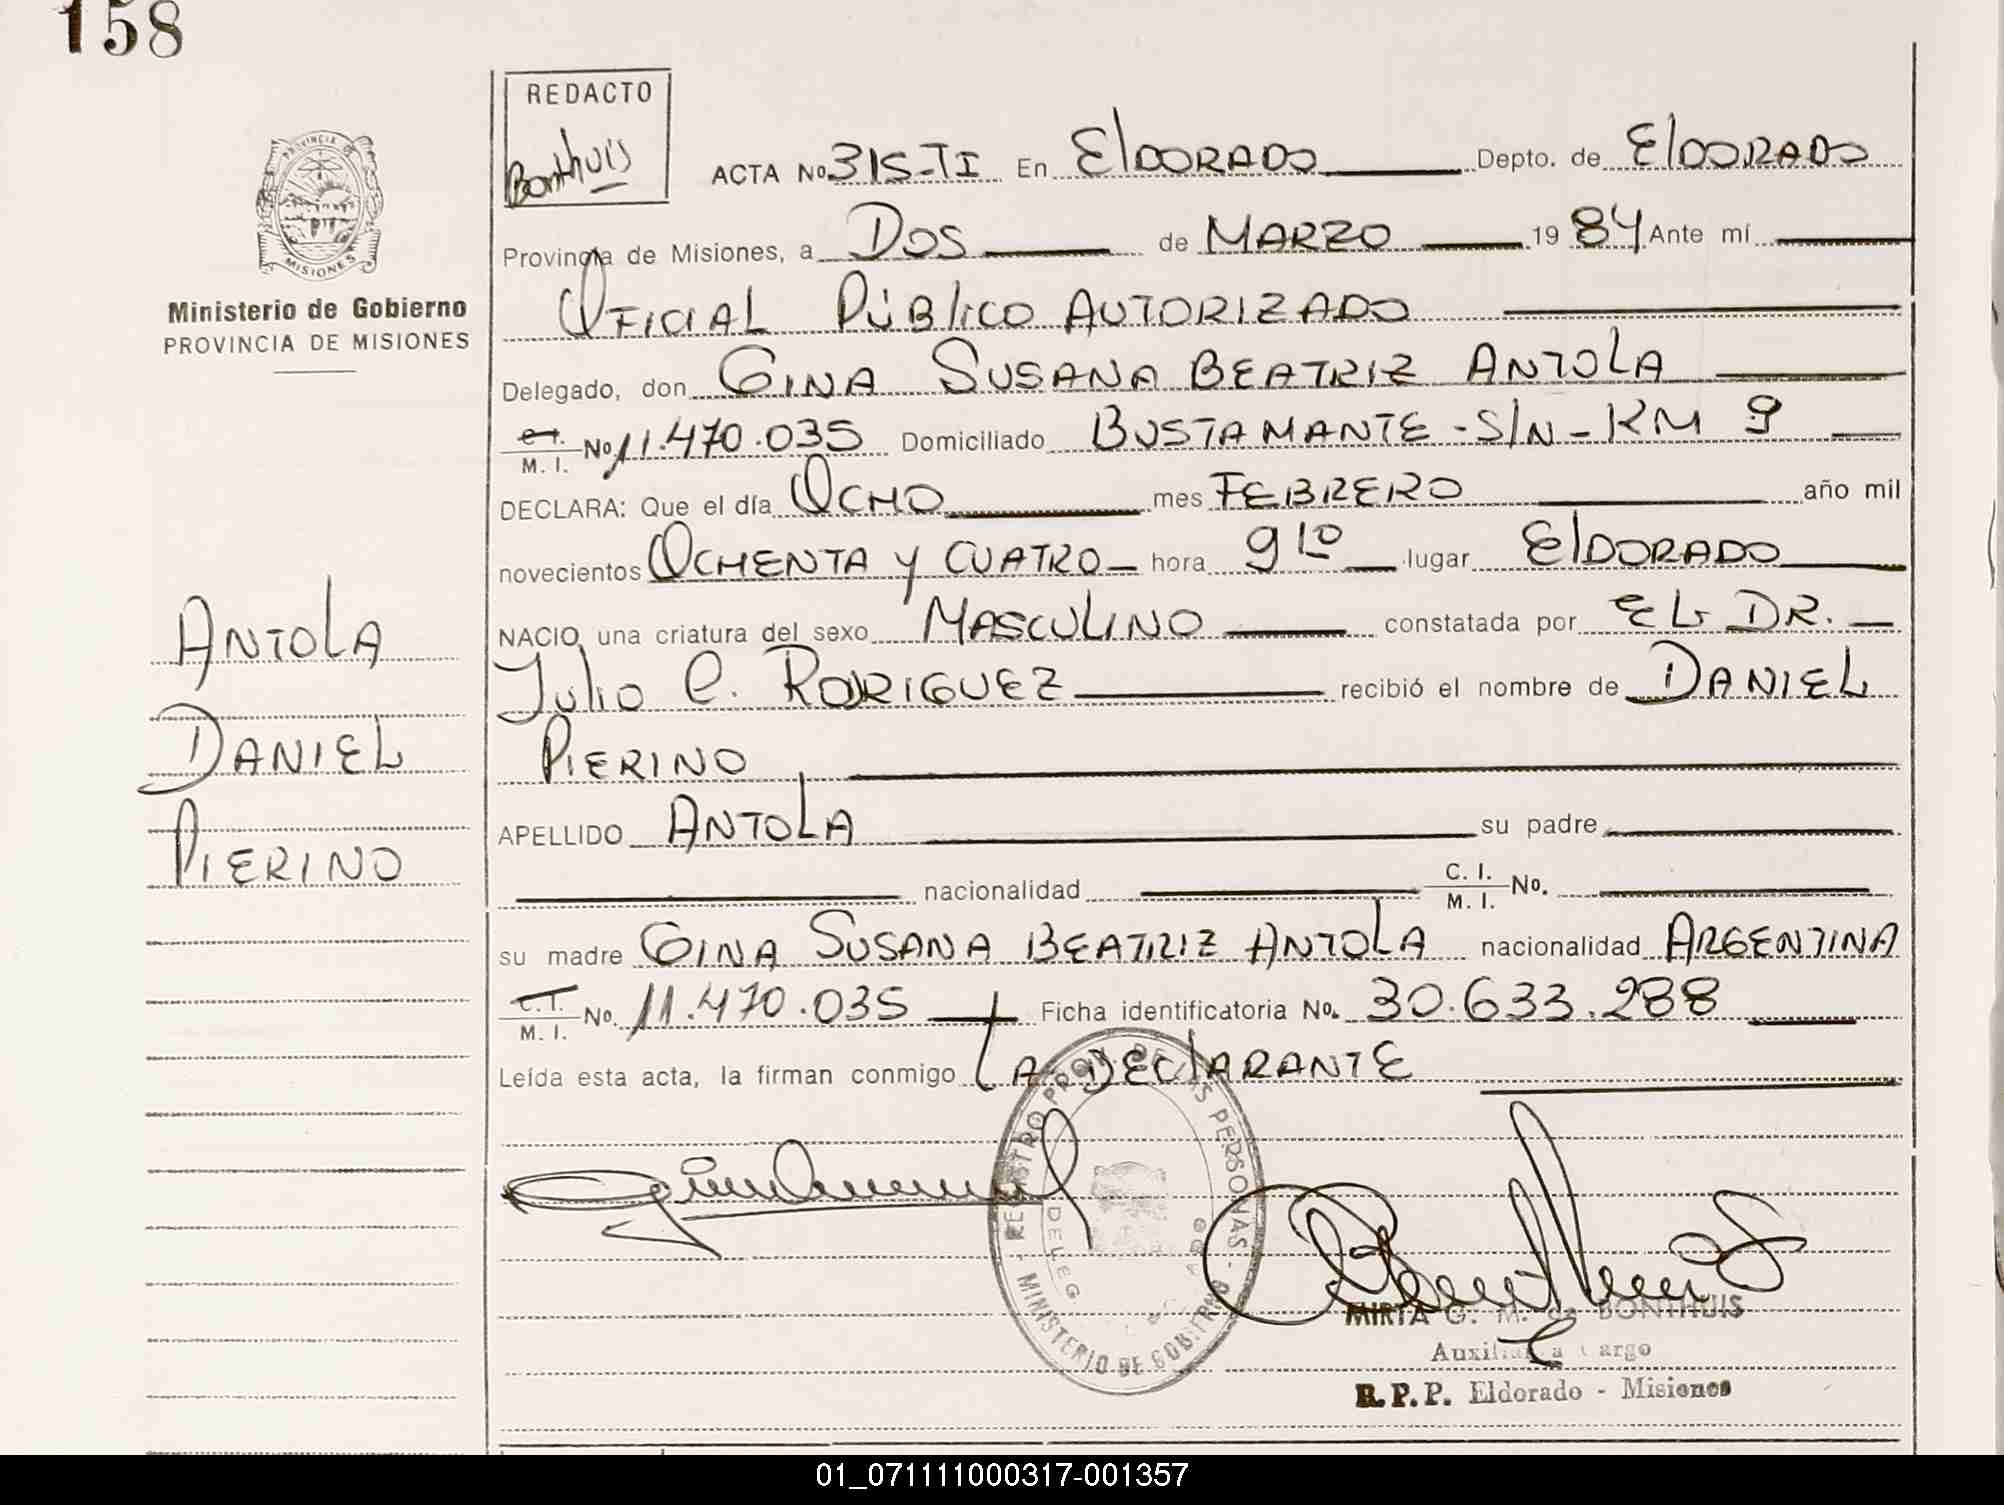 158
REDACTO
Bonthuis
ACTA No 315-TI En ElDORADO Depto. de ElDORADO
Provincia de Misiones, a DOS de MARZO 1984 Ante mí
OFICIAL PÚBlICO AUTORIZADO
Delegado, don GINA SUSANA BEATRIZ ANTOLA
C.I. M. I. No 11.470.035 Domiciliado BUSTAMANTE - S/N - KM 9
DECLARA: Que el día OCHO mes FEBRERO año mil
novecientos OCHENTA Y CUATRO hora 9 10 lugar ElDORADO
NACIO una criatura del sexo MASCULINO constatada por EL DR.
Julio C. RODRIGUEZ recibió el nombre de DANIEL
PIERINO
APELLIDO ANTOLA su padre
nacionalidad C. I. M. I. No.
su madre GINA SUSANA BEATRIZ ANTOLA nacionalidad ARGENTINA
C.I. M. I. No. 11.470.035 Ficha identificatoria No. 30.633.288
Leída esta acta, la firman conmigo LA DEClARANTE
PROVINCIA DE MISIONES
Ministerio de Gobierno
PROVINCIA DE MISIONES
ANTOLA
DANIEL
PIERINO
REGISTRO PROV. DE LAS PERSONAS
MINISTERIO DE GOBIERNO
DELEG.
MIRTA G. M. de BONTHUIS
Auxiliar a cargo
R. P. P. Eldorado - Misiones
01_071111000317-001357